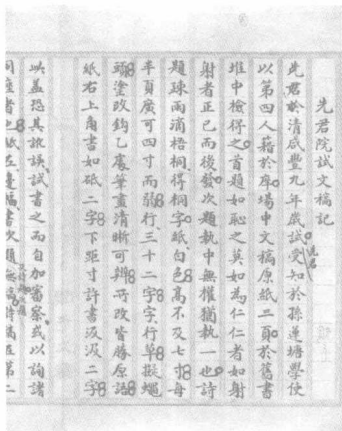 先君院試文稿記
先君於清咸豐九年歲試受知於孫蕖塘學使
以第四人籍於庠場中文稿原紙二頁於舊書
堆中檢得之首題如恥之莫如為仁仁者如射
射者正己而後發次題執中無權猶執一也詩
題疎雨滴梧桐得桐字紙白色高不及七寸每
半頁廣可四寸而弱行三十二字字行草擬蠅
頭塗改鈎乙處筆畫清晰可辨所改皆勝原語
紙右上角書如砥二字下距寸許書汲汲二字
以蓋恐其訛誤試書之而自加審察或以詢諸
同座者也紙左邊隔書次題